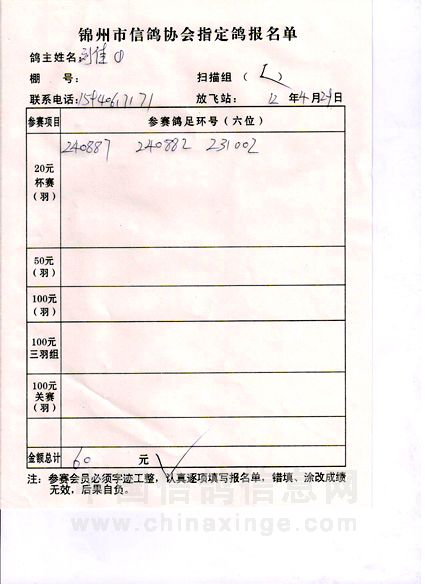 锦州市信鸽协会指定鸽报名单
鸽主姓名: 刘佳 ①
棚 号: 扫描组 ( )
联系电话: 放飞站: 12 年 4 月 29 日
参赛项目 参赛鸽足环号 (六位)
20元 杯赛 (羽) 240887 240882 231002
50元 (羽)
100元 (羽)
100元 三羽组
100元 关赛 (羽)
金额总计 60 元
注: 参赛会员必须字迹工整, 认真逐项填写报名单, 错填、涂改成绩
无效, 后果自负。
中国信鸽信息网
www.chinaxinge.com